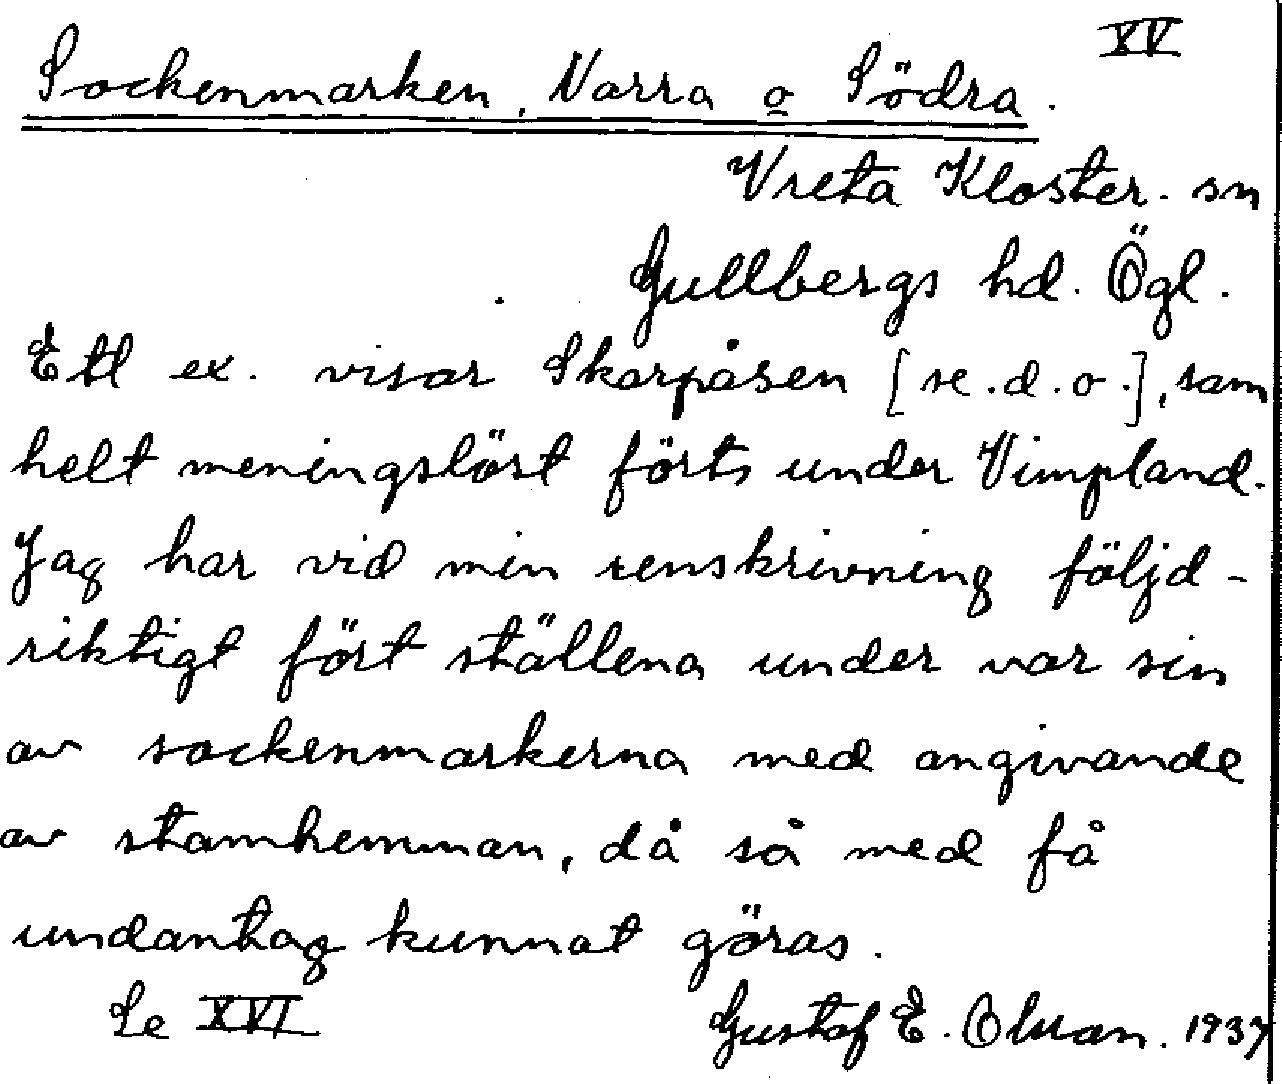 XV
Sockenmarken, Norra o Södra.
Vreta Kloster. sn
Gullbergs hd. Ögl.
Ett ex. visar Skarpåsen [se.d.o.], som
helt meningslöst förts under Vimpland.
Jag har vid min renskrivning följd-
riktigt fört ställena under var sin
av sockenmarkerna med angivande
av stamhemman, då så med få
undantag kunnat göras.
Se XVI Gustaf E. Olsson. 1937